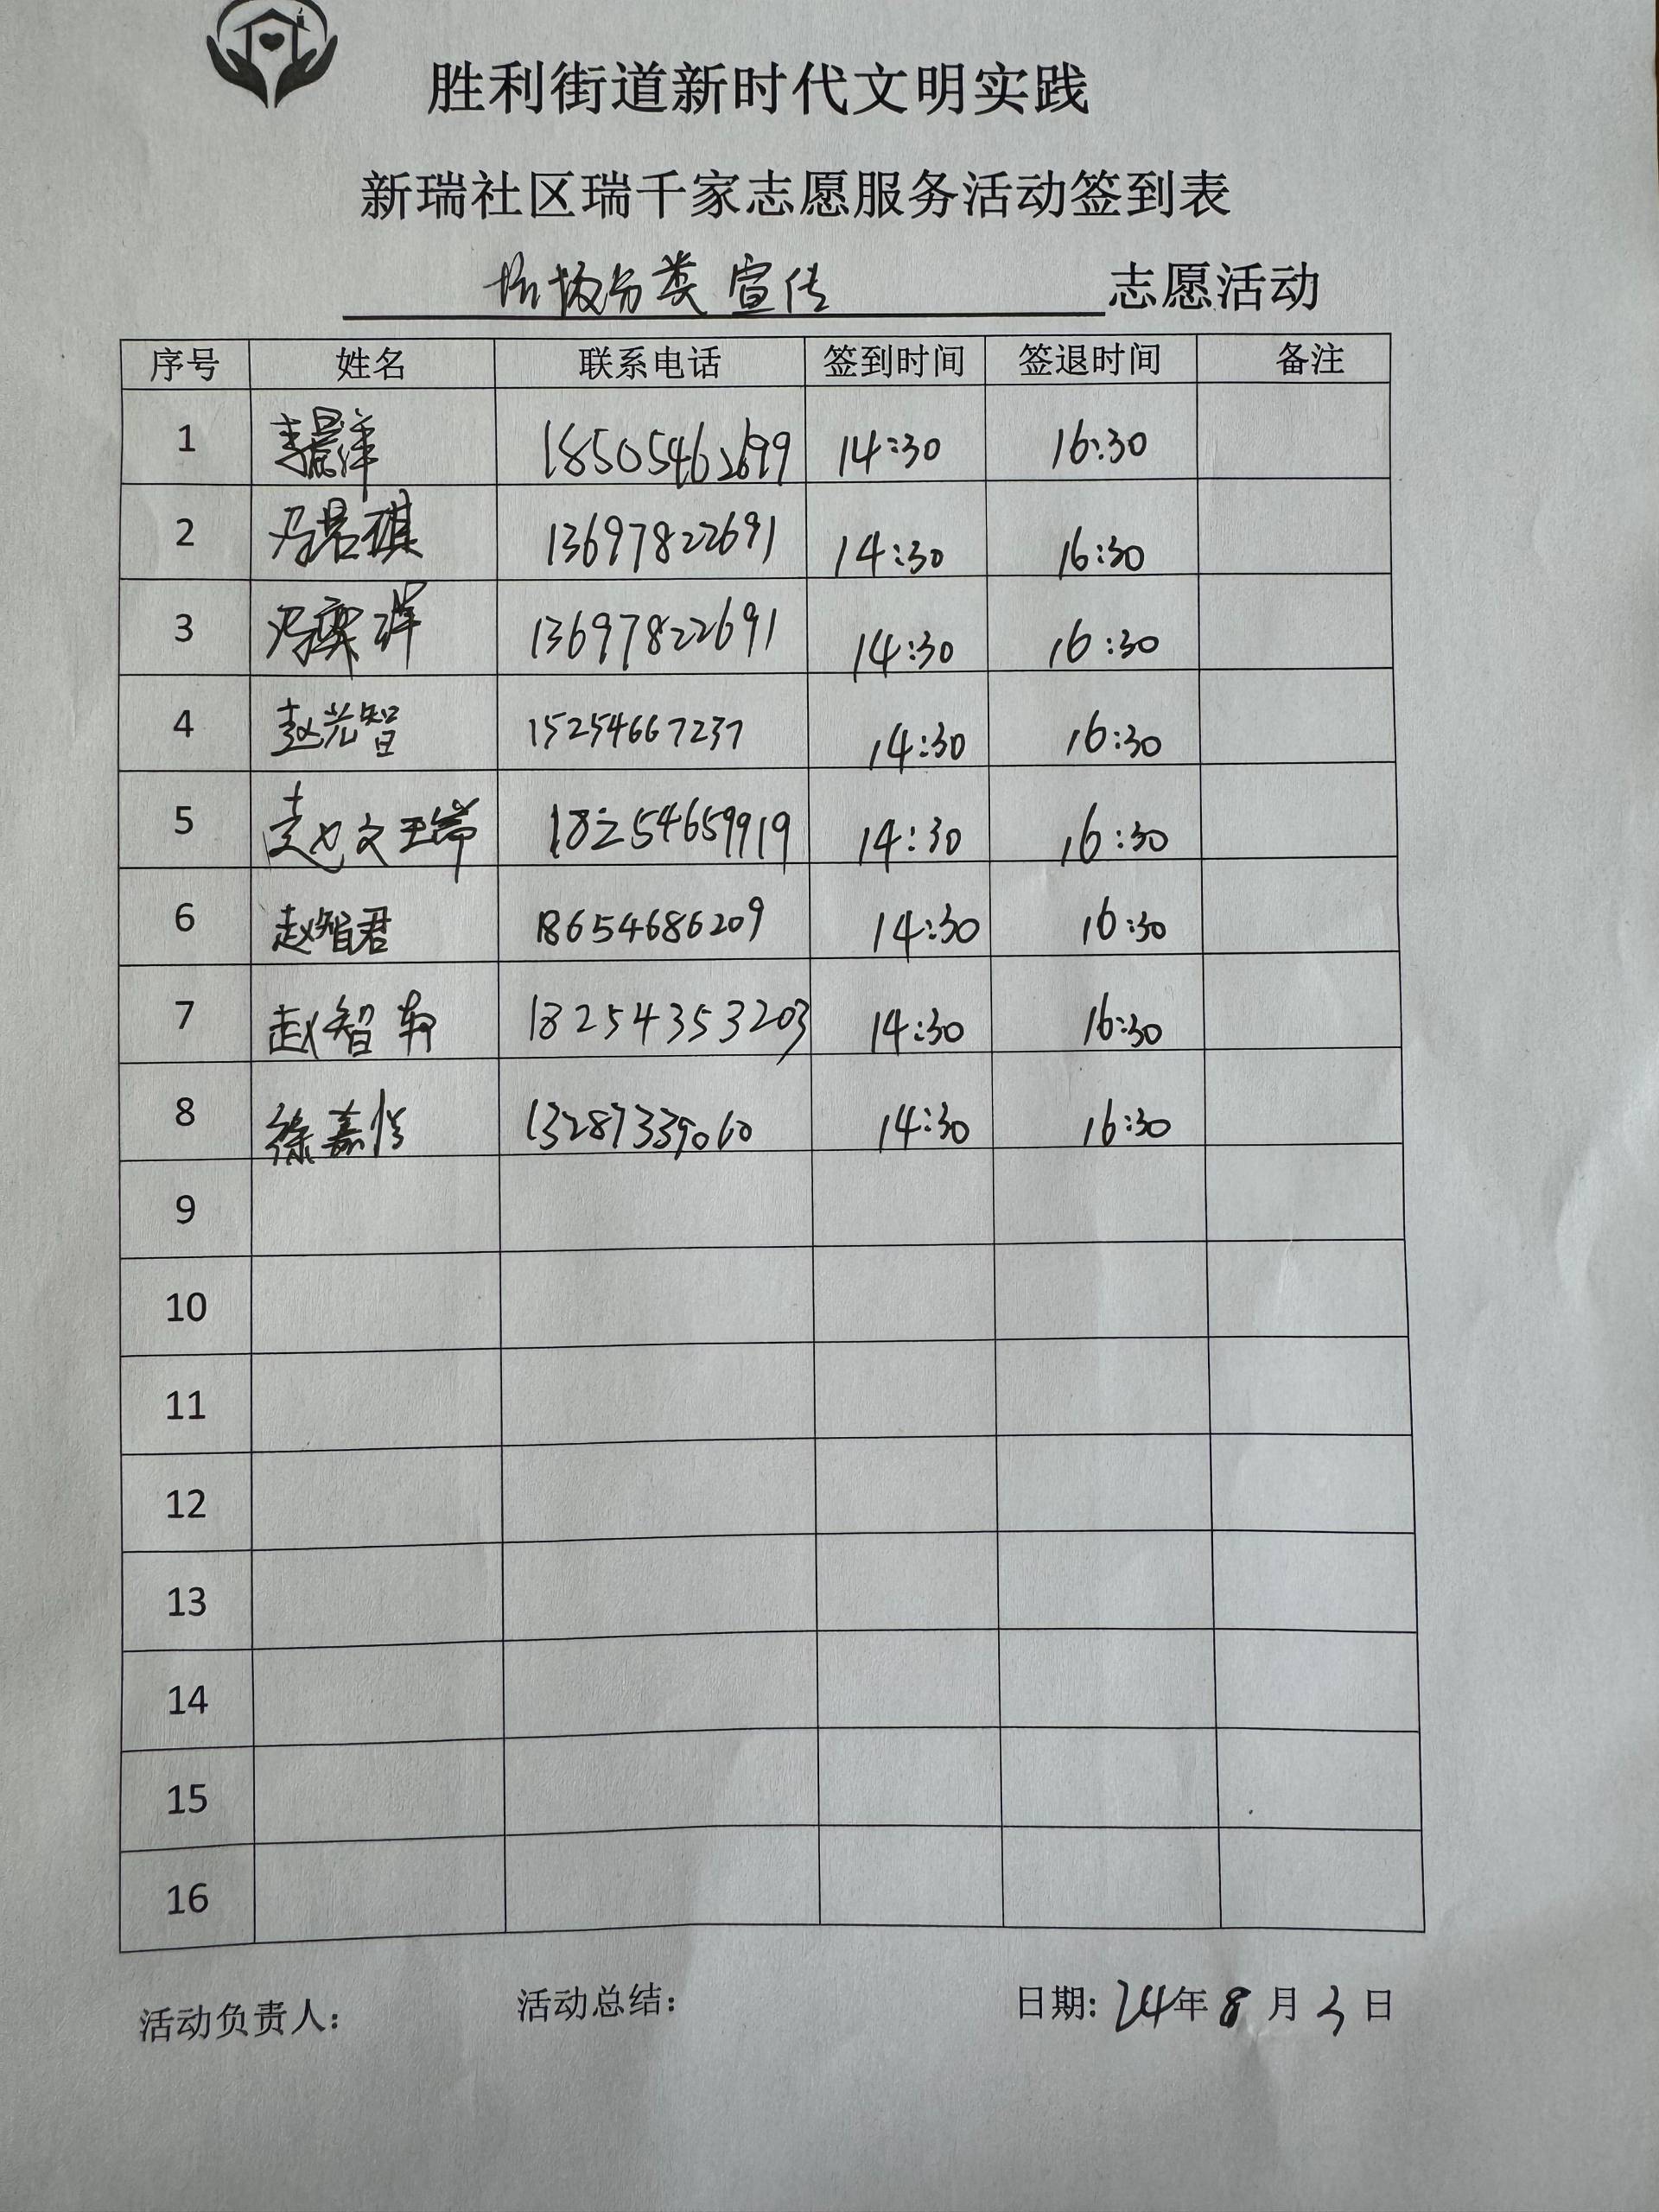 胜利街道新时代文明实践
新瑞社区瑞千家志愿服务活动签到表
垃圾分类宣传 志愿活动
序号 姓名 联系电话 签到时间 签退时间 备注
1 李晨洋 18505462699 14:30 16:30
2 冯若琪 13697822691 14:30 16:30
3 冯奕洋 13697822691 14:30 16:30
4 赵光智 15254667237 14:30 16:30
5 赵文瑞 18254659919 14:30 16:30
6 赵智君 18654686209 14:30 16:30
7 赵智轩 18254353203 14:30 16:30
8 徐嘉怡 13287339060 14:30 16:30
9
10
11
12
13
14
15
16
活动负责人: 活动总结: 日期: 24年8月3日